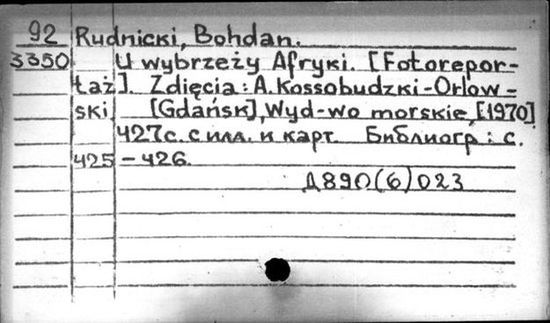 92 Rudnicki, Bohdan.
3350 U wybrzeży Afryki. [Fotorepor-
taż]. Zdięcia: A. Kossobudzki-Orłow-
ski. [Gdańsk], Wyd-wo morskie, [1970]
427 с. с илл. и карт. Библиогр.: с.
425-426.
Д890(6)023